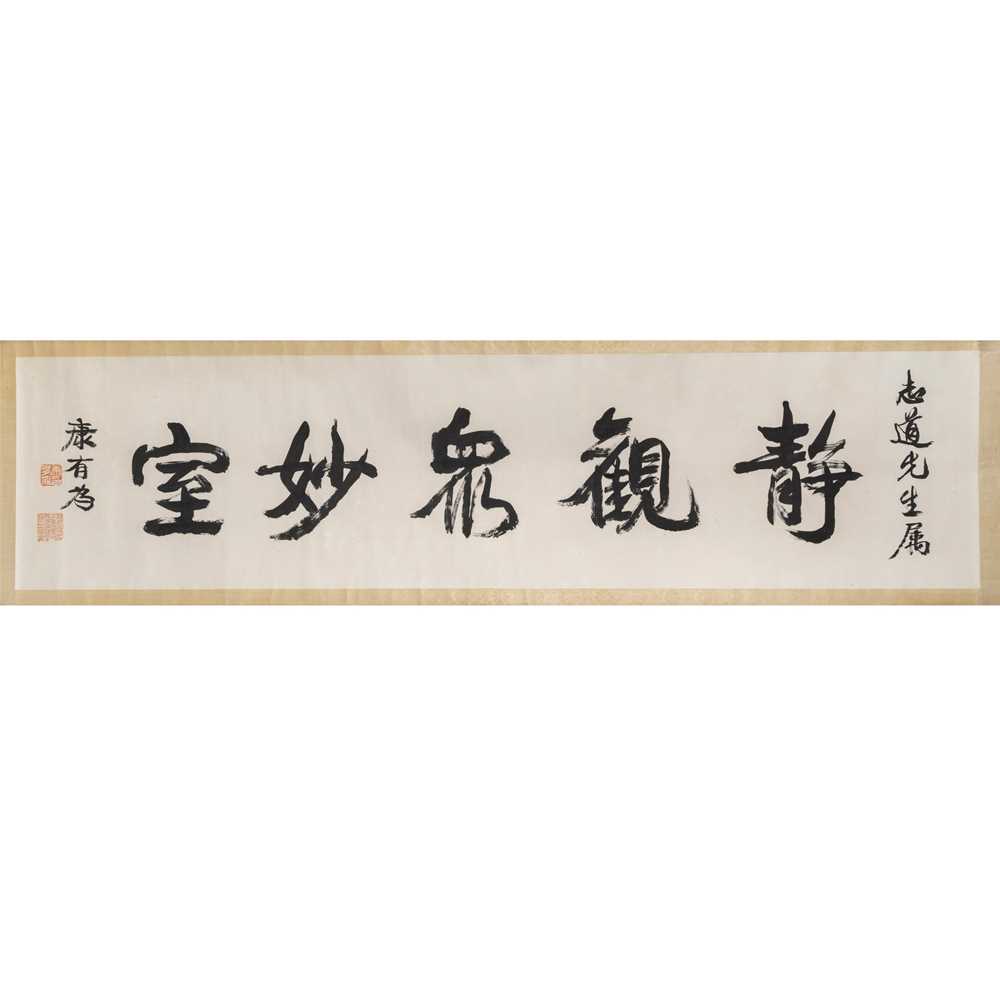 志道先生属
靜觀眾妙室
康有為